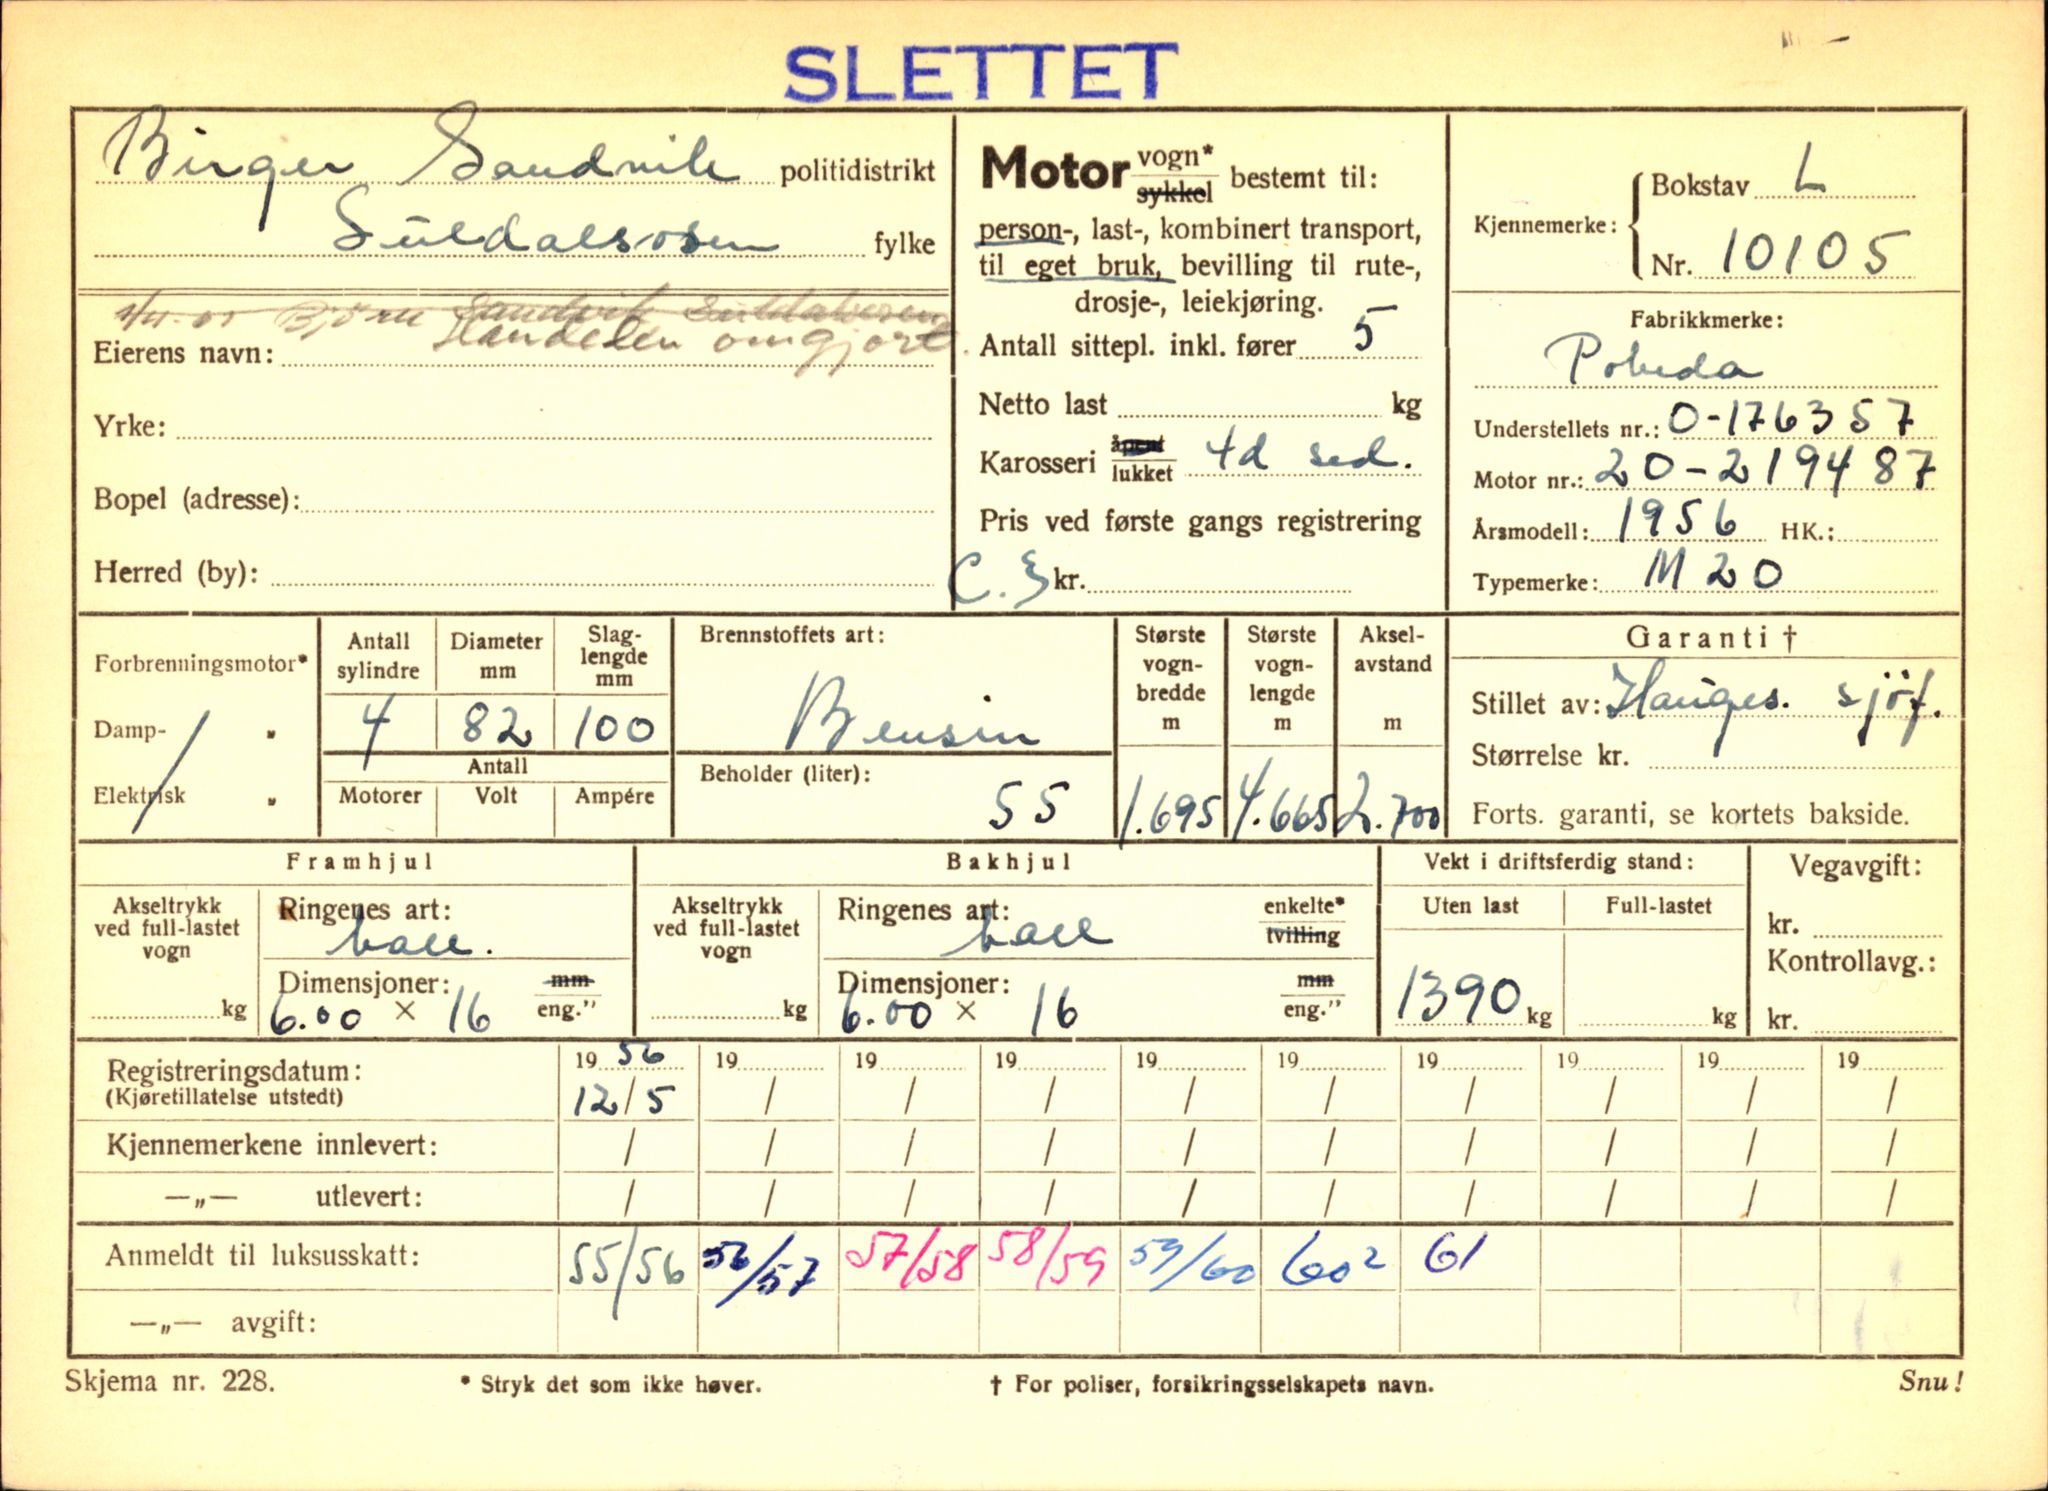 SLETTET
Birger Sandvik politidistrikt
Suldalsosen fylke
Bjørn Sandvik Suldalsosen
Handelen omgjort.
Eierens navn:
Yrke:
Bopel (adresse):
Herred (by):
Motor vogn* sykkel bestemt til:
person-, last-, kombinert transport,
til eget bruk, bevilling til rute-,
drosje-, leiekjøring.
Antall sittepl. inkl. fører 5
Netto last kg
Karosseri åpent lukket 4d sed.
Pris ved første gangs registrering
kr.
Kjennemerke: Bokstav L
Nr. 10105
Fabrikkmerke:
Pobeda
Understellets nr.: 0-176357
Motor nr.: 20-219487
Årsmodell: 1956 HK.:
Typemerke: M20
Forbrenningsmotor*
Damp- "
Elektrisk "
Antall sylindre Diameter mm Slag-lengde mm
4 82 100
Antall
Motorer Volt Ampére
Brennstoffets art:
Bensin
Beholder (liter):
55
Største vogn-bredde m Største vogn-lengde m Aksel-avstand m
1.695 4.665 2.700
Garanti †
Stillet av: Hauges. sjöf.
Størrelse kr.
Forts. garanti, se kortets bakside.
Framhjul
Akseltrykk ved full-lastet vogn kg
Ringenes art:
ball.
Dimensjoner: mm eng."
6.00 × 16
Bakhjul
Akseltrykk ved full-lastet vogn kg
Ringenes art: enkelte* tvilling
ball
Dimensjoner: mm eng."
6.00 × 16
Vekt i driftsferdig stand:
Uten last Full-lastet
1390 kg kg
Vegavgift:
kr.
Kontrollavg.:
kr.
Registreringsdatum: 19 56 19 19 19 19 19 19 19 19 19
(Kjøretillatelse utstedt) 12/5 / / / / / / / / /
Kjennemerkene innlevert: / / / / / / / / / /
—„— utlevert: / / / / / / / / / /
Anmeldt til luksusskatt: 55/56 56/57 57/58 58/59 59/60 60² 61
—„— avgift:
Skjema nr. 228. * Stryk det som ikke høver. † For poliser, forsikringsselskapets navn. Snu!